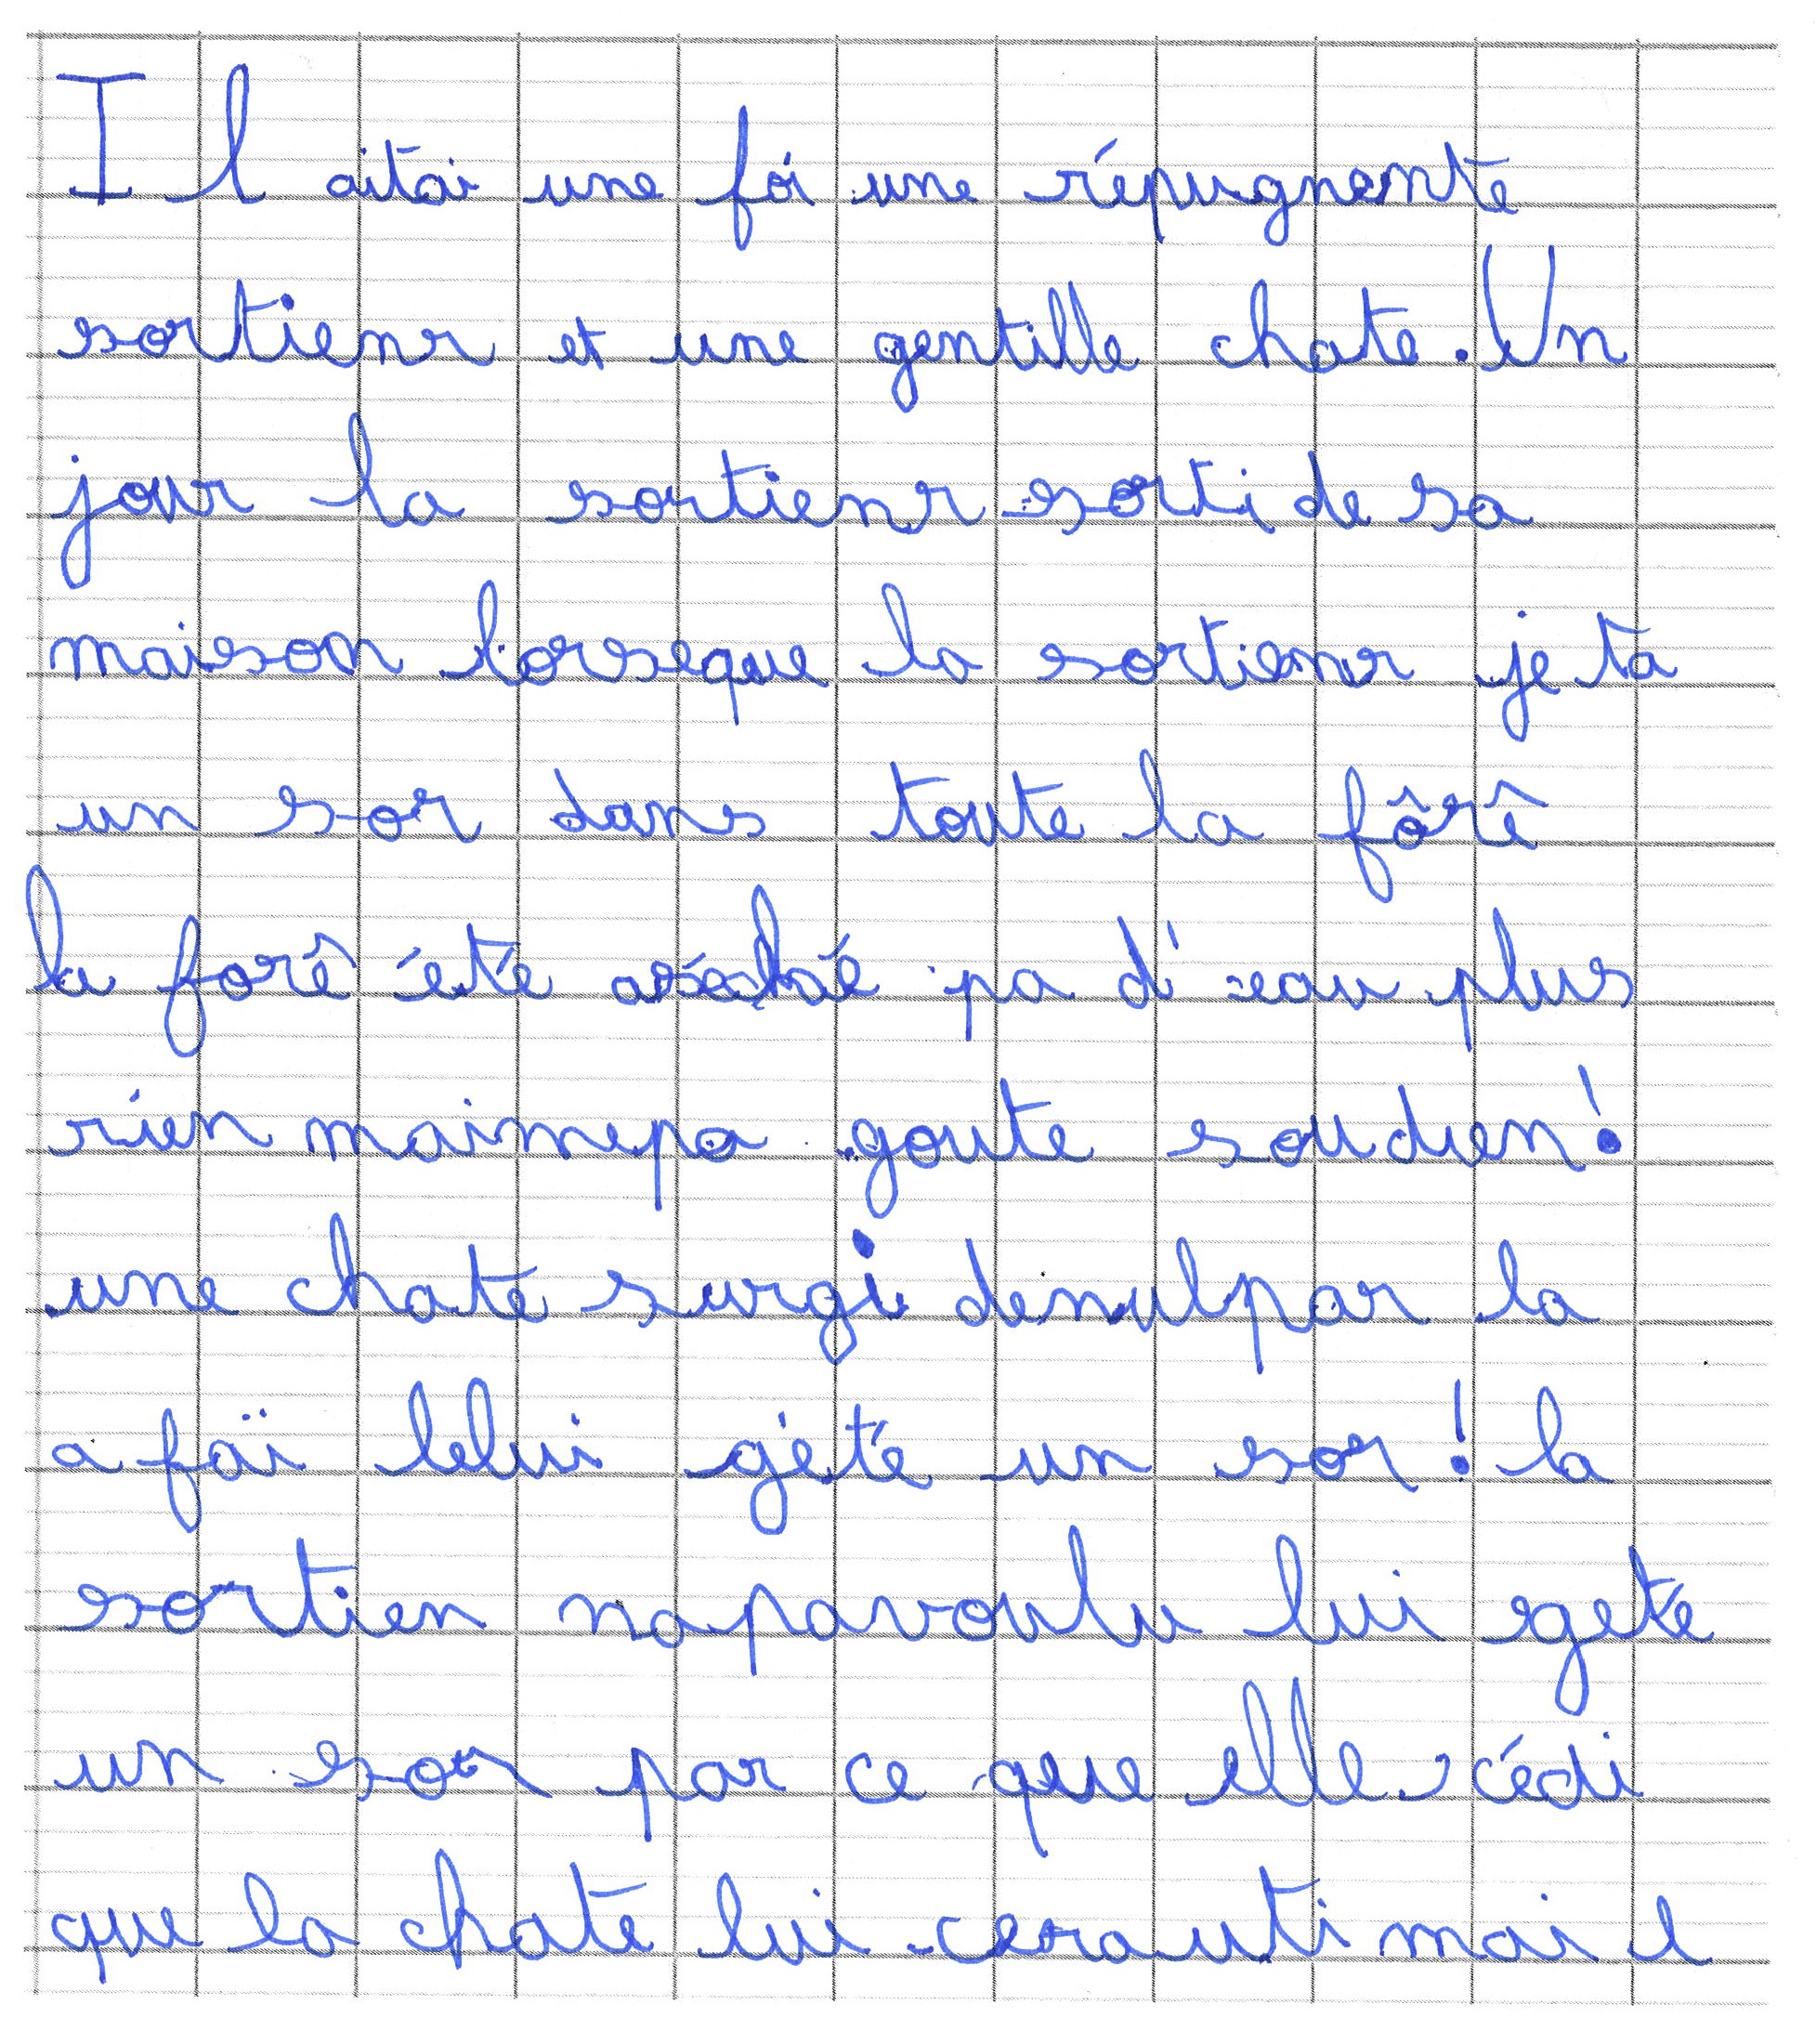 Il aitai une foi une répugnante
sortienr et une gentille chate. Un
jour la sortienr sorti de sa
maison lorseque la sortienr je ta
un sor dans toute la fôrê
la forê été aséché pa d'eau plus
rien maimepa goute soudien!
une chate surgi denulpar la
a faï lelui gété un sor! la
sortien napavoulu lui geté
un sor par ce que elle cédi
que la chate lui cerauti mai l